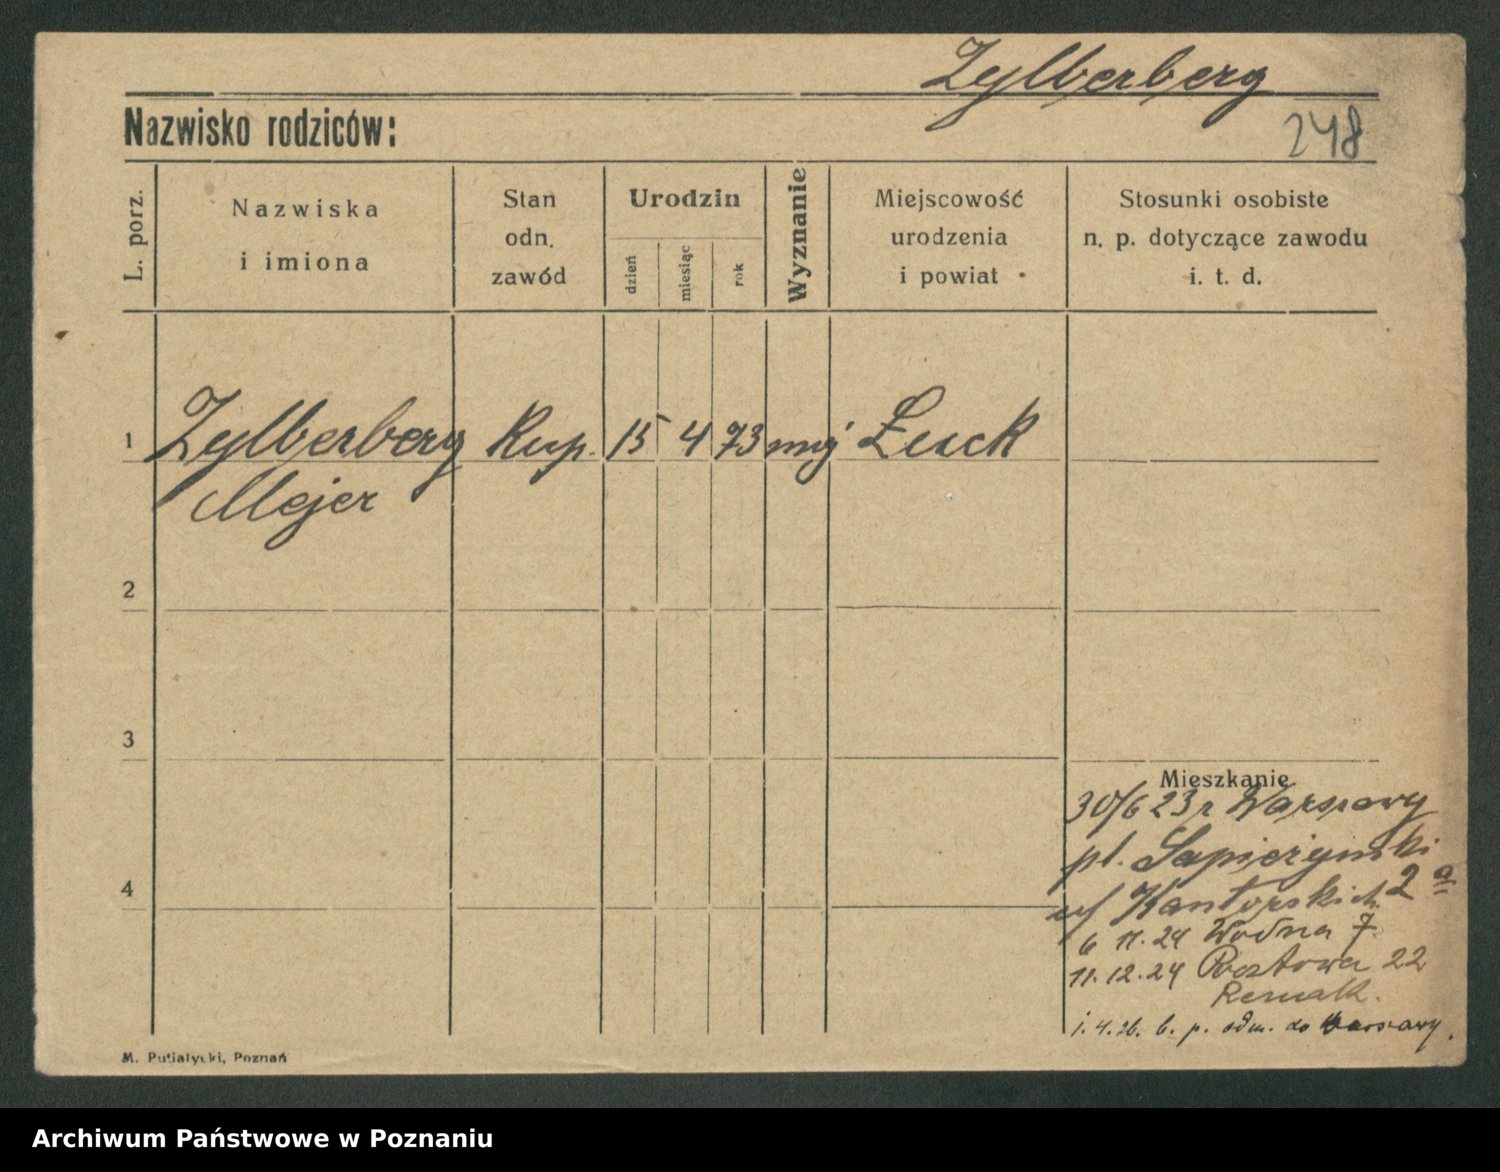 Zylberberg
Nazwisko rodziców:
248
L. porz.
Nazwiska
i imiona
Stan
odn.
zawód
Urodzin
dzień
miesiąc
rok
Wyznanie
Miejscowość
urodzenia
i powiat
Stosunki osobiste
n. p. dotyczące zawodu
i. t. d.
1 Zylberberg Kup. 15 4 73 moj Łuck
Mejer
2
3
Mieszkanie
30/6 23 r Warszawy
pl. Sapieżyński
4
Kantorskich 2 a
6 11. 24 Wodna 7
11. 12. 24 Pocztowa 22
1. 4. 26. b. p. odm. do Warszawy.
M. Putiatycki, Poznań
Archiwum Państwowe w Poznaniu